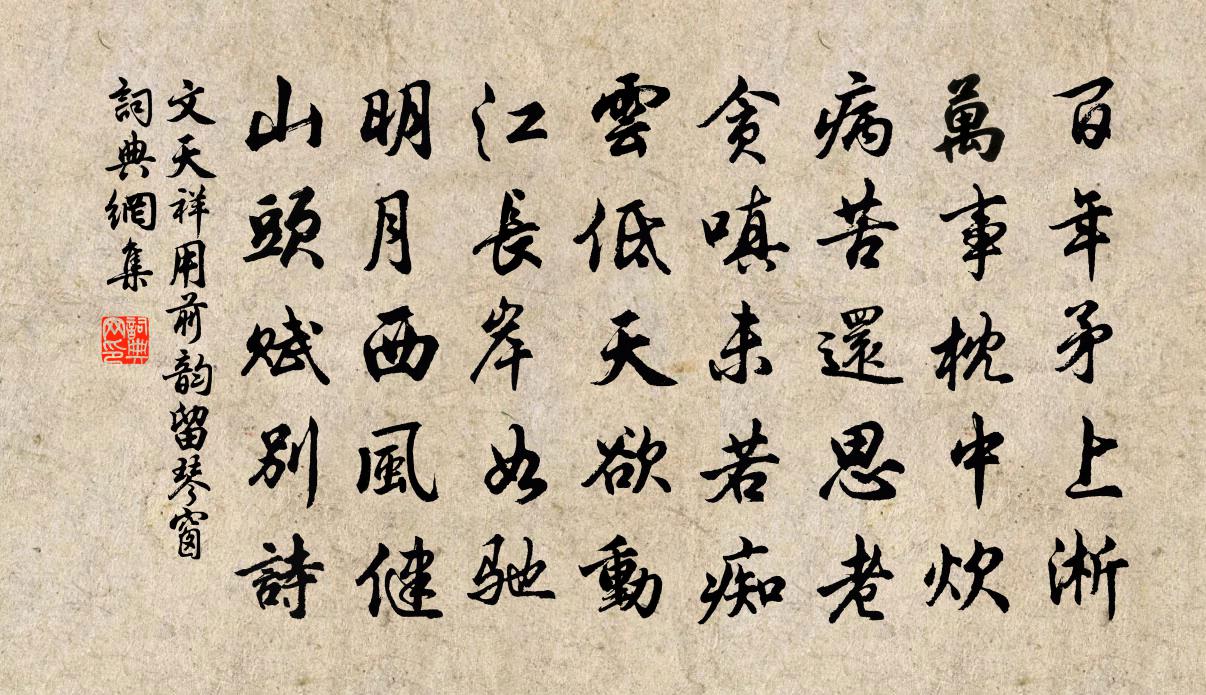 百年矛上淅
萬事枕中炊
病苦還思老
貪嗔未若痴
雲低天欲動
江長岸如馳
明月西風健
山頭賦別詩
文天祥用前韵留琴窗
詞典網集
詞典网印